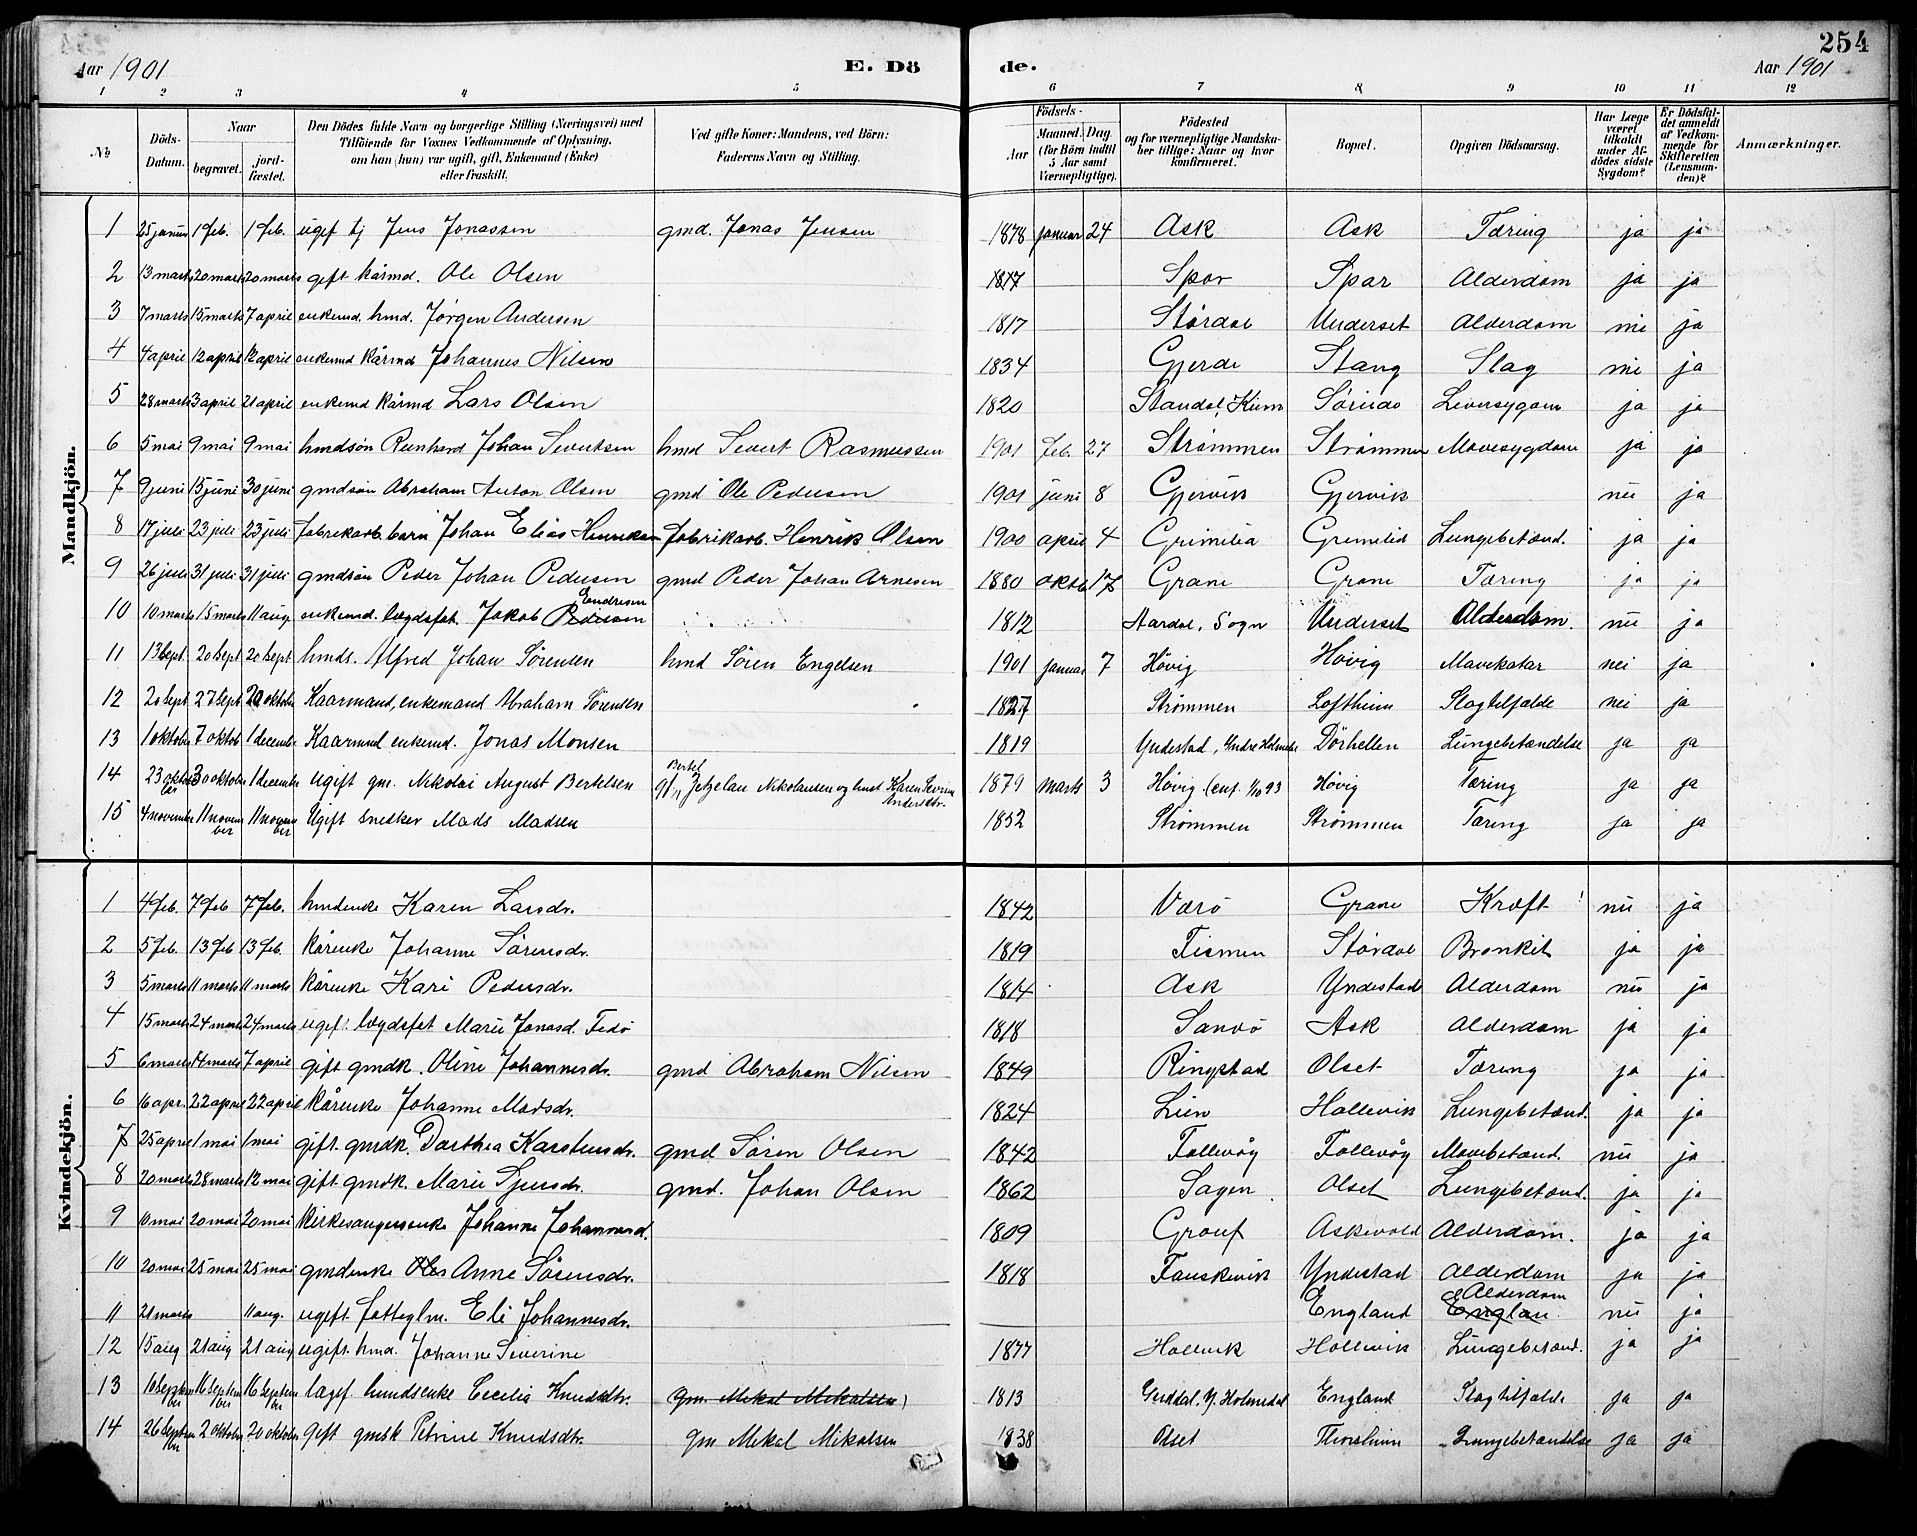 254
Aar 1901 E. Dö de. Aar 1901
1 2 3 4 5 6 7 8 9 10 11 12
No Döds-Datum. Naar begravet. jord-fæstet. Den Dödes fulde Navn og borgerlige Stilling (Næringsvei) med Tilföiende for Voxnes Vedkommende af Oplysning, om han (hun) var ugift, gift, Enkemand (Enke) eller fraskilt. Ved gifte Koner: Mandens, ved Börn: Faderens Navn og Stilling. Födsels- Aar Maaned. Dag. (for Börn indtil 5 Aar samt Værnepligtige). Födested og for værnepligtige Mandskaber tillige: Naar og hvor konfirmeret. Bopæl. Opgiven Dödsaarsag. Har Læge været tilkaldt under Afdödes sidste Sygdom? Er Dödsfaldet anmeldt af Vedkommende for Skifteretten (Lensmanden)? Anmærkninger.
Mandkjön.
1 25 januar 1 feb. 1 feb. ugift tj Jens Jonassen gmd. Jonas Jensen 1878 januar 24 Ask Ask Tæring ja ja
2 13 marts 20 marts 20 marts gift kårmd. Ole Olsen 1817 Spar Spar Alderdom ja ja
3 7 marts 15 marts 7 april enkemd. hmd. Jørgen Andersen 1817 Stårdal Underset Alderdom nei ja
4 4 april 12 april 12 april enkemd kårmd Johannes Nilsen 1834 Gjerde Stang Slag nei ja
5 28 marts 3 april 21 april enkemd kårmd Lars Olsen 1820 Standal, Kinn Leversygdom ja ja
6 5 mai 9 mai 9 mai hmdsøn Reinhard Johan Severtsen hmd Severt Rasmussen 1901 feb. 27 Strømmen Strømmen Mavesygdom ja ja
7 9 juni 15 juni 30 juni gmdsøn Abraham Anton Olsen gmd Ole Pedersen 1901 juni 8 Gjervik Gjervik nei ja
8 17 juli 23 juli 23 juli fabrikarb. barn Johan Elias Henriksen fabrikarb. Henrik Olsen 1900 april 4 Grimelia Grimelid Lungebetænd. ja ja
9 26 juli 31 juli 31 juli gmdsøn Peder Johan Pedersen gmd Peder Johan Arnesen 1880 oktob 17 Grane Grane Tæring ja ja
10 10 marts 15 marts 11 aug. enkemd. lægdsfat. Jakob Pedersen Endresen 1812 Aardal, Sogn Underset Alderdom. nei ja
11 13 Sept. 20 Sept 20 Sept hmds. Alfred Johan Sørensen hmd Søren Engelsen 1901 januar 7 Høvig Høvig Mavekatar nei ja
12 20 Sept 27 Sept 20 oktober Kaarmand, enkemand Abraham Sørensen 1827 Strømmen Loftheim Slagtilfælde nei ja
13 1 oktober 7 oktob 1 december Kaarmand enkemd. Jonas Monsen 1819 Yndestad, Yndre Holmedal Dørhellen Lungebetændelse ja ja
14 23 oktober 30 oktober 1 december Ugift gm. Nikolai August Bertelsen Bertel Nikolaisen og hust Karen Severine Andersdtr. 1879 marts 3 Høvig (conf. 1/10 93 Høvig Tæring ja ja
15 4 november 11 november 11 november Ugift snedker Mads Madsen 1852 Strømmen Strømmen Tæring ja ja
Kvindekjön.
1 4 feb. 7 feb 7 feb. hmdenke Karen Larsdr. 1842 Værø Grane Kræft nei ja
2 5 feb. 13 feb 13 feb. kårenke Johanne Sørensdr. 1819 Tismen Stårdal Bronkit ja ja
3 5 marts 11 marts 11 marts kårenke Kari Pedersdr. 1814 Ask Yndestad Alderdom nei ja
4 15 marts 24 marts 24 marts ugif. lægdsfat Marie Jonasd. Fedø 1818 Sandø Ask Alderdom ja ja
5 6 marts 14 marts 7 april gift gmdk. Oline Johannesdr. gmd Abraham Nilsen 1849 Ringstad Olset Tæring ja ja
6 16 apr. 22 april 22 april kårenke Johanne Madsdr. 1824 Lien Hollevik Lungebetænd. ja ja
7 25 april 1 mai 1 mai gift. gmdk. Dorthea Karstensdr. gmd Søren Olsen 1842 Follevåg Follevåg Mavebetænd. nei ja
8 20 marts 28 marts 12 mai gift gmdk. Marie Sjursdr. gmd. Johan Olsen 1862 Sagen Olset Lungebetænd. ja ja
9 10 mai 20 mai 20 mai kirkesangersenke Johanne Johannesd. 1809 Grouf Askevold Alderdom. ja ja
10 20 mai 25 mai 25 mai gmdenke Anne Sørensdr. 1818 Fauskevik Yndestad Alderdom ja ja
11 21 marts 11 aug. ugift fattiglm. Eli Johannesdr. England Englan Alderdom nei ja
12 15 aug 21 aug 21 aug ugift hmd. Johanne Severine 1877 Hollevik Hollevik Lungebetænd. ja ja
13 10 September 16 September 16 September lægf. hmdsenke Cecilia Knudsdtr. gm. Mekal Mikalsen 1813 Guddal, Y. Holmedal England Slagtilfælde ja ja
14 26 September 2 oktober 20 oktober Gift gmsk Petrine Knudsdtr. gm Mekal Mikalsen 1838 Olset Thorsheim Lungebetændelse ja ja